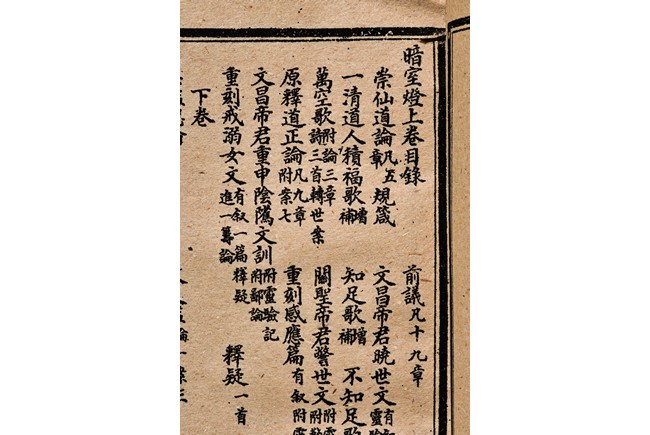 暗室燈上卷目錄 前議凡十九章
崇仙道論凡五章 規箴 文昌帝君曉世文有 靈驗
一清道人積福歌增補 知足歌增補 不知足歌
萬空歌附論三章詩三首轉世案 關聖帝君警世文附 附
原釋道正論凡九章附案七 重刻感應篇有叙附
文昌帝君重申陰隲文訓附靈驗記附鄙論
重刻戒溺女文有叙一篇釋疑進一籌論 釋疑一首
下卷